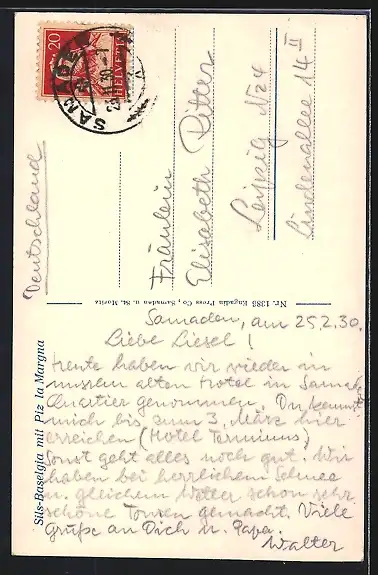 HELVETIA
20
SAMADEN
Deutschland
Fräulein
Elisabeth Ritter
Leipzig N24
Lindenallee 14 II
Nr. 1385 Engadin Press Co., Samaden u. St. Moritz
Sils-Baselgia mit Piz la Margna
Samaden, am 25.2.30.
Liebe Liesel!
Heute haben wir wieder in
unserem alten Hotel in Samaden
Quartier genommen. Du kannst
mich bis zum 3. März hier
erreichen (Hotel Terminus)
Sonst geht alles noch gut. Wir
haben bei herrlichem Schnee
u. gleichem Wetter schon sehr
schöne Touren gemacht. Viele
Grüße an Dich u. Papa.
Walter